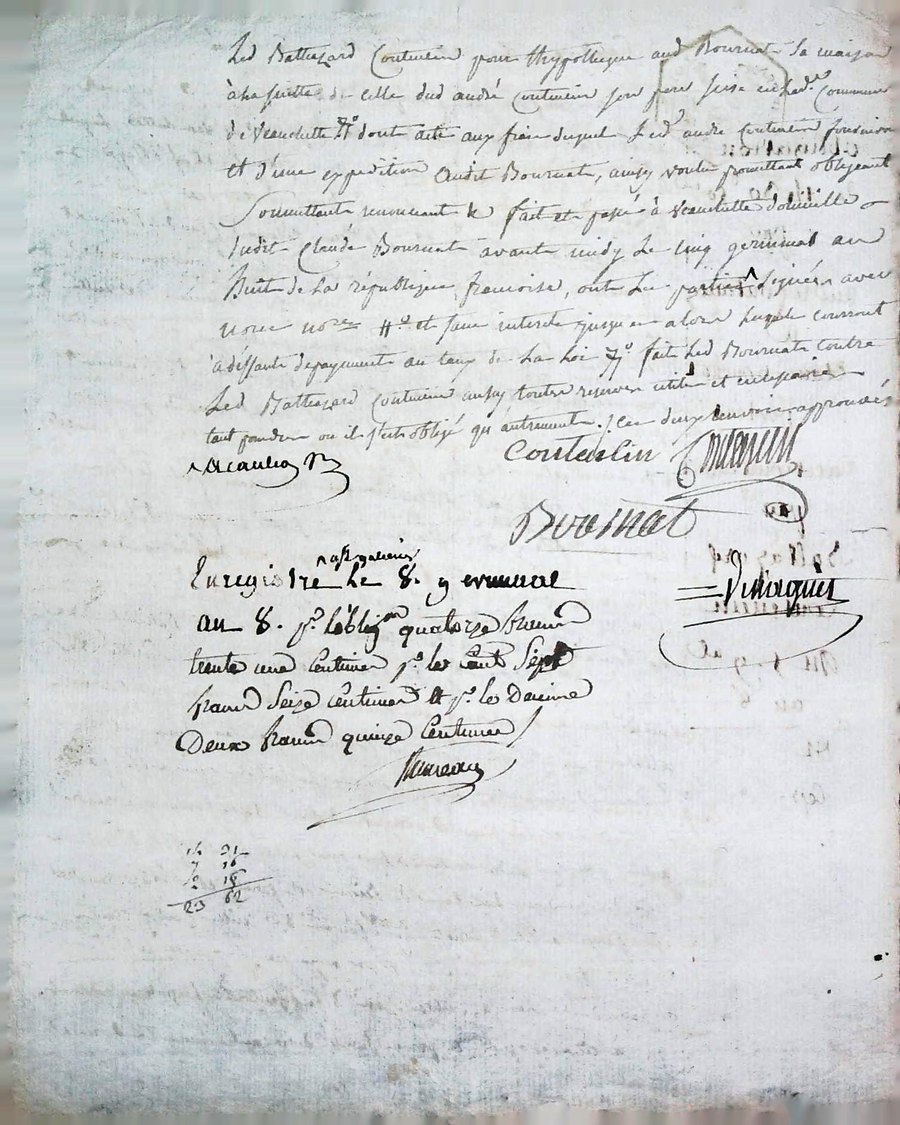 Led Balthazard Couturin pour l'hypotheque aud Bournat Sa maison
à la suitte de celle dud andré Couturin son pere sise en lad.e Commune
de Veauchette dont acte aux frais duquel Led andre Couturin fournira
et d'une expedition audit Bournat, ainsy voulu promettant obligeant
Soumettant renoncant & fait et passé à Veauchette domicille
dudit Claude Bournat avant midy Le cinq germinal an
huit de La république francoise, ont Les parties ^ signées avec
nous no.re et sans interets jusques alors lequels courront
à déffaut de payement au taux de La Loi fait Led Bournat contre
Led Balthazard Couturin ainsy toutes reserves utiles et
tant fondées ou il s'est obligé qu'autrement. / Ces deux renvoirs approuvés
Bournat
Enregistré le 8. germinal
an 8. p.r l'oblig.on quatorze francs
trente une Centimes p.r les Cent Sept
francs Seize Centimes & p.r le Decime
Deux francs quinze Centimes /
14 31
7 16
2 15
23 62